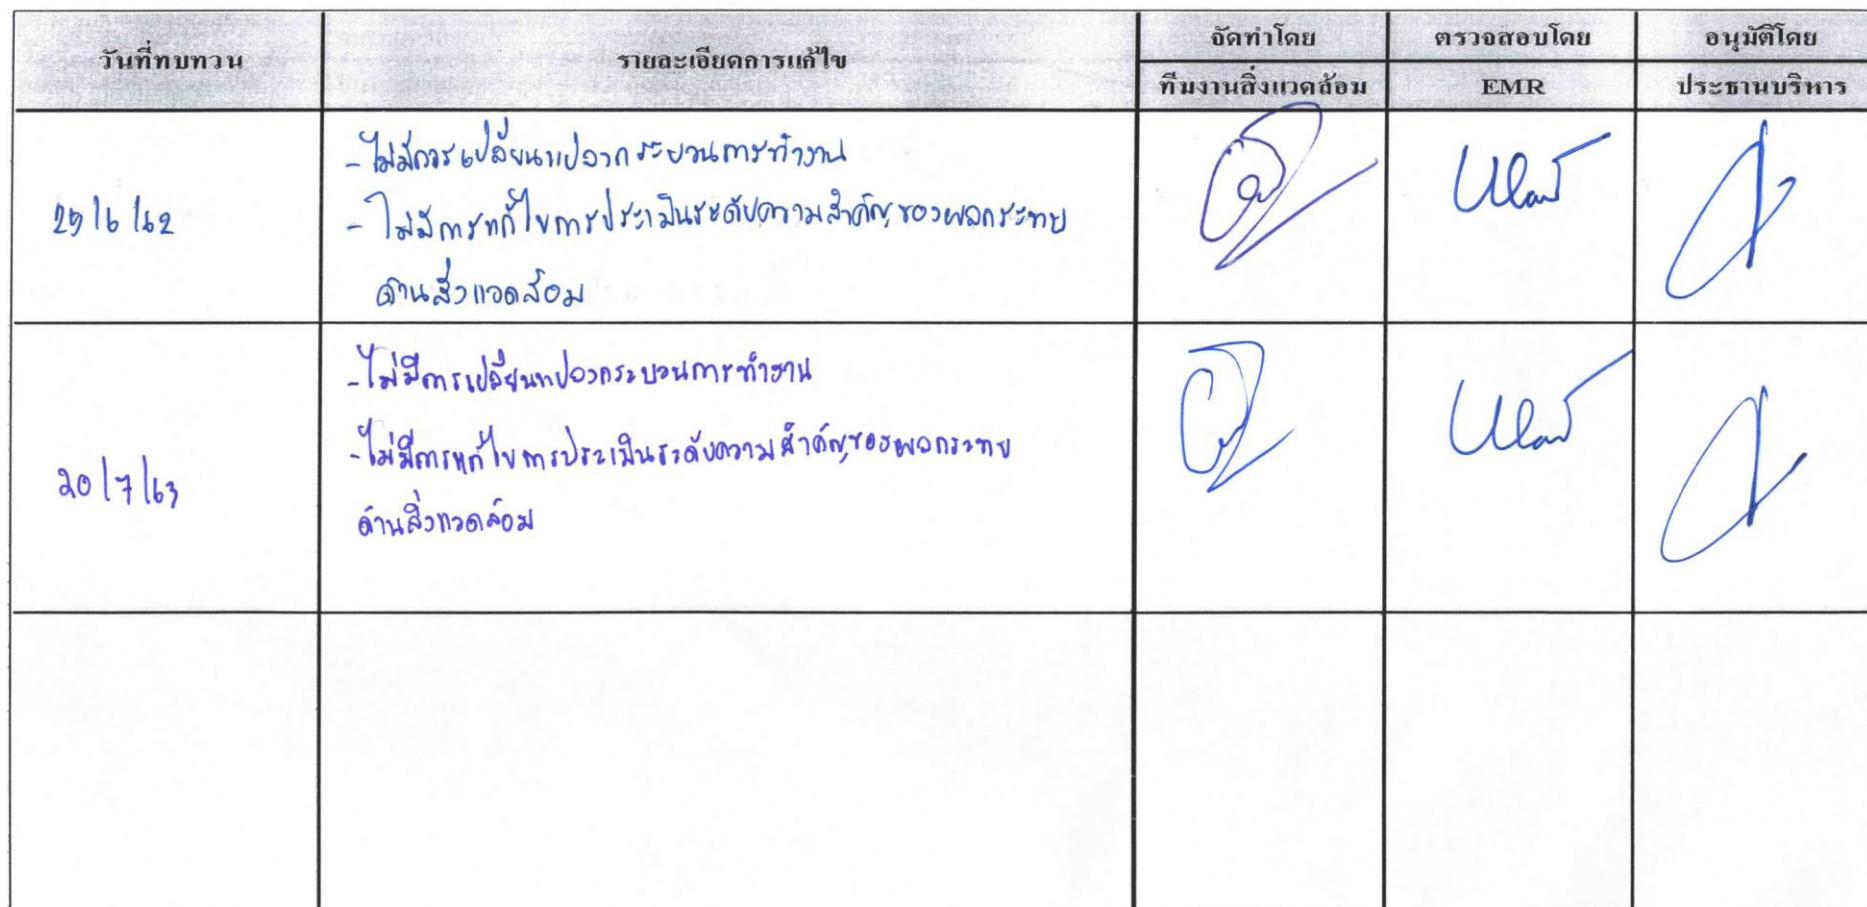 วันที่ทบทวน
รายละเอียดการแก้ไข
จัดทำโดย
ตรวจสอบโดย
อนุมัติโดย
ทีมงานสิ่งแวดล้อม
EMR
ประธานบริหาร
25/6/62
-ไม่มีการเปลี่ยนแปลงกระบวนการทำงาน
- ไม่มีการแก้ไขการประเมินระดับความสำคัญของผลกระทบ
ด้านสิ่งแวดล้อม
20/7/63
-ไม่มีการเปลี่ยนแปลงกระบวนการทำงาน
-ไม่มีการแก้ไขการประเมินระดับความสำคัญของผลกระทบ
ด้านสิ่งแวดล้อม